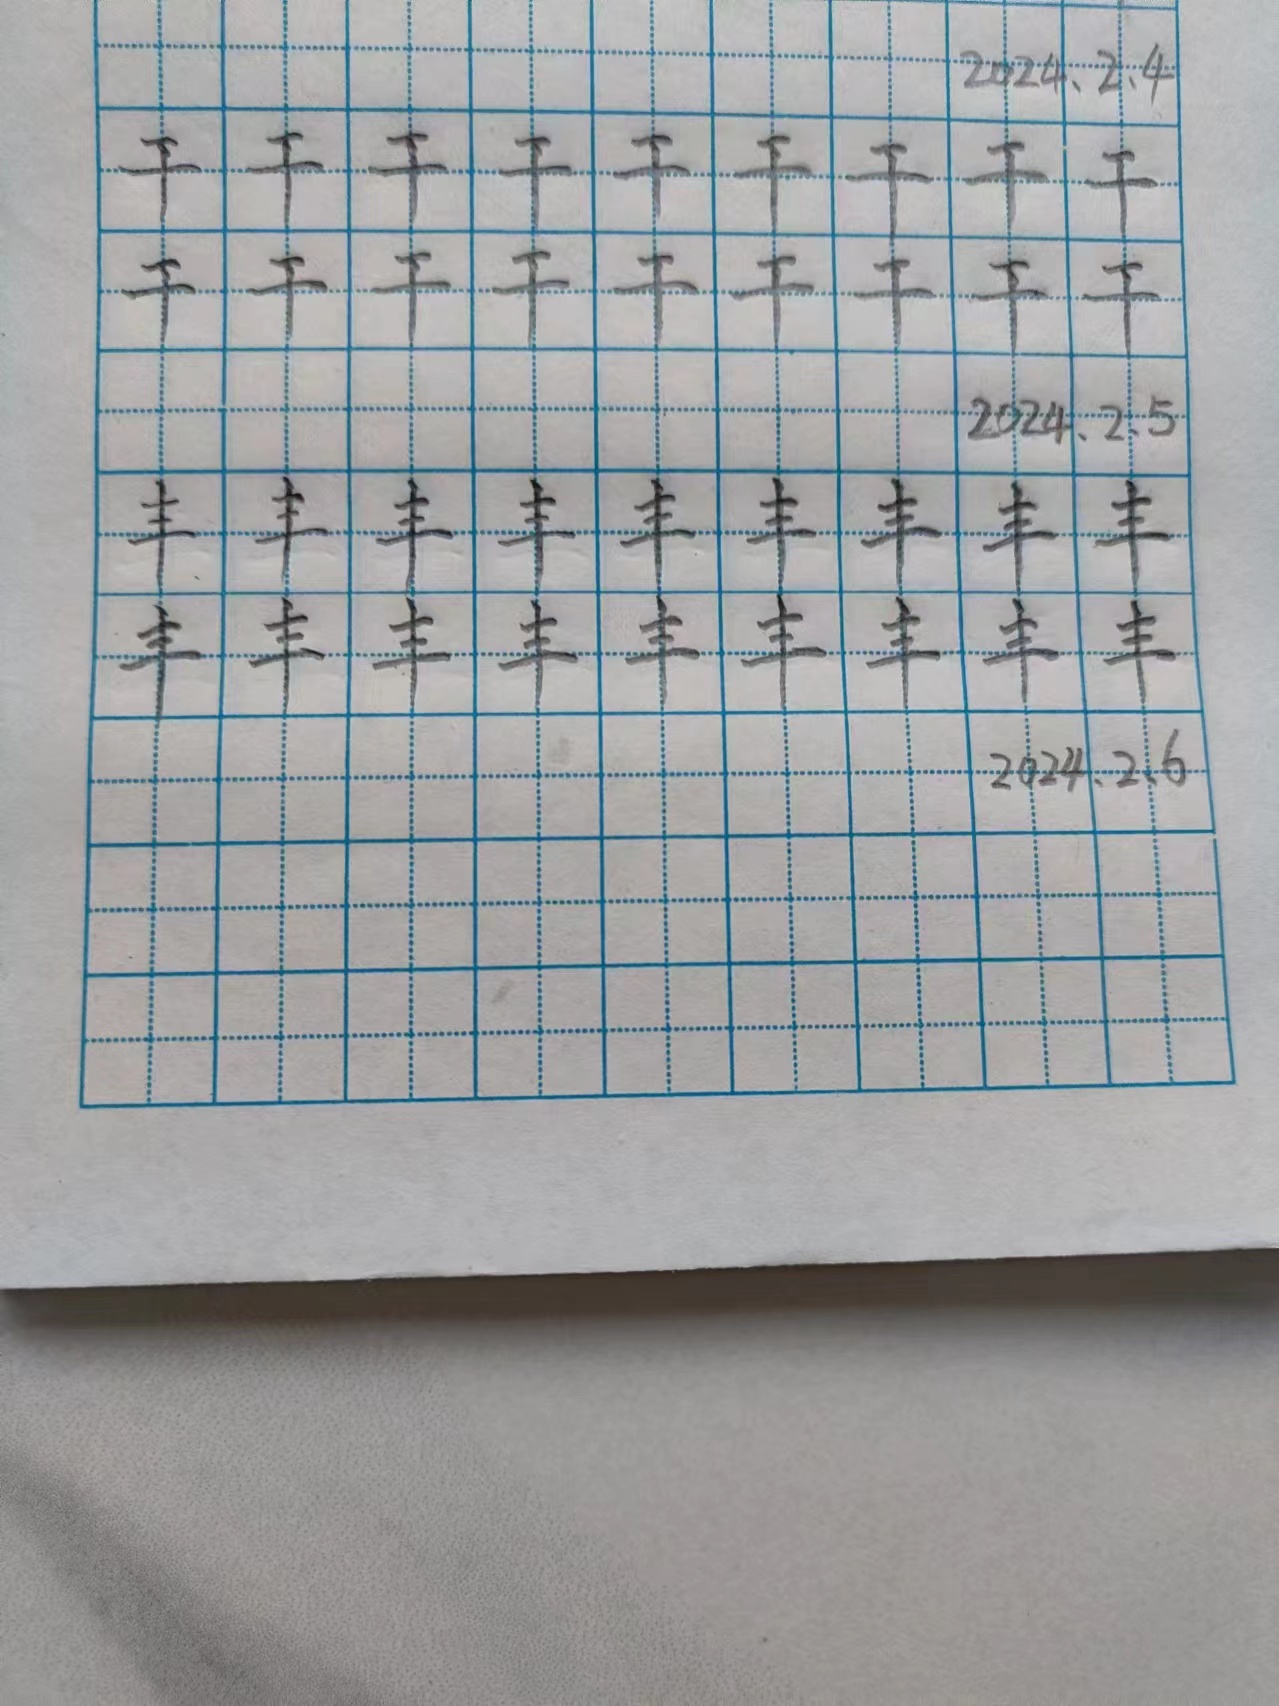 2024.2.4
干干干干干干干干干
干干干干干干干干干
2024.2.5
丰丰丰丰丰丰丰丰丰
丰丰丰丰丰丰丰丰丰
2024.2.6